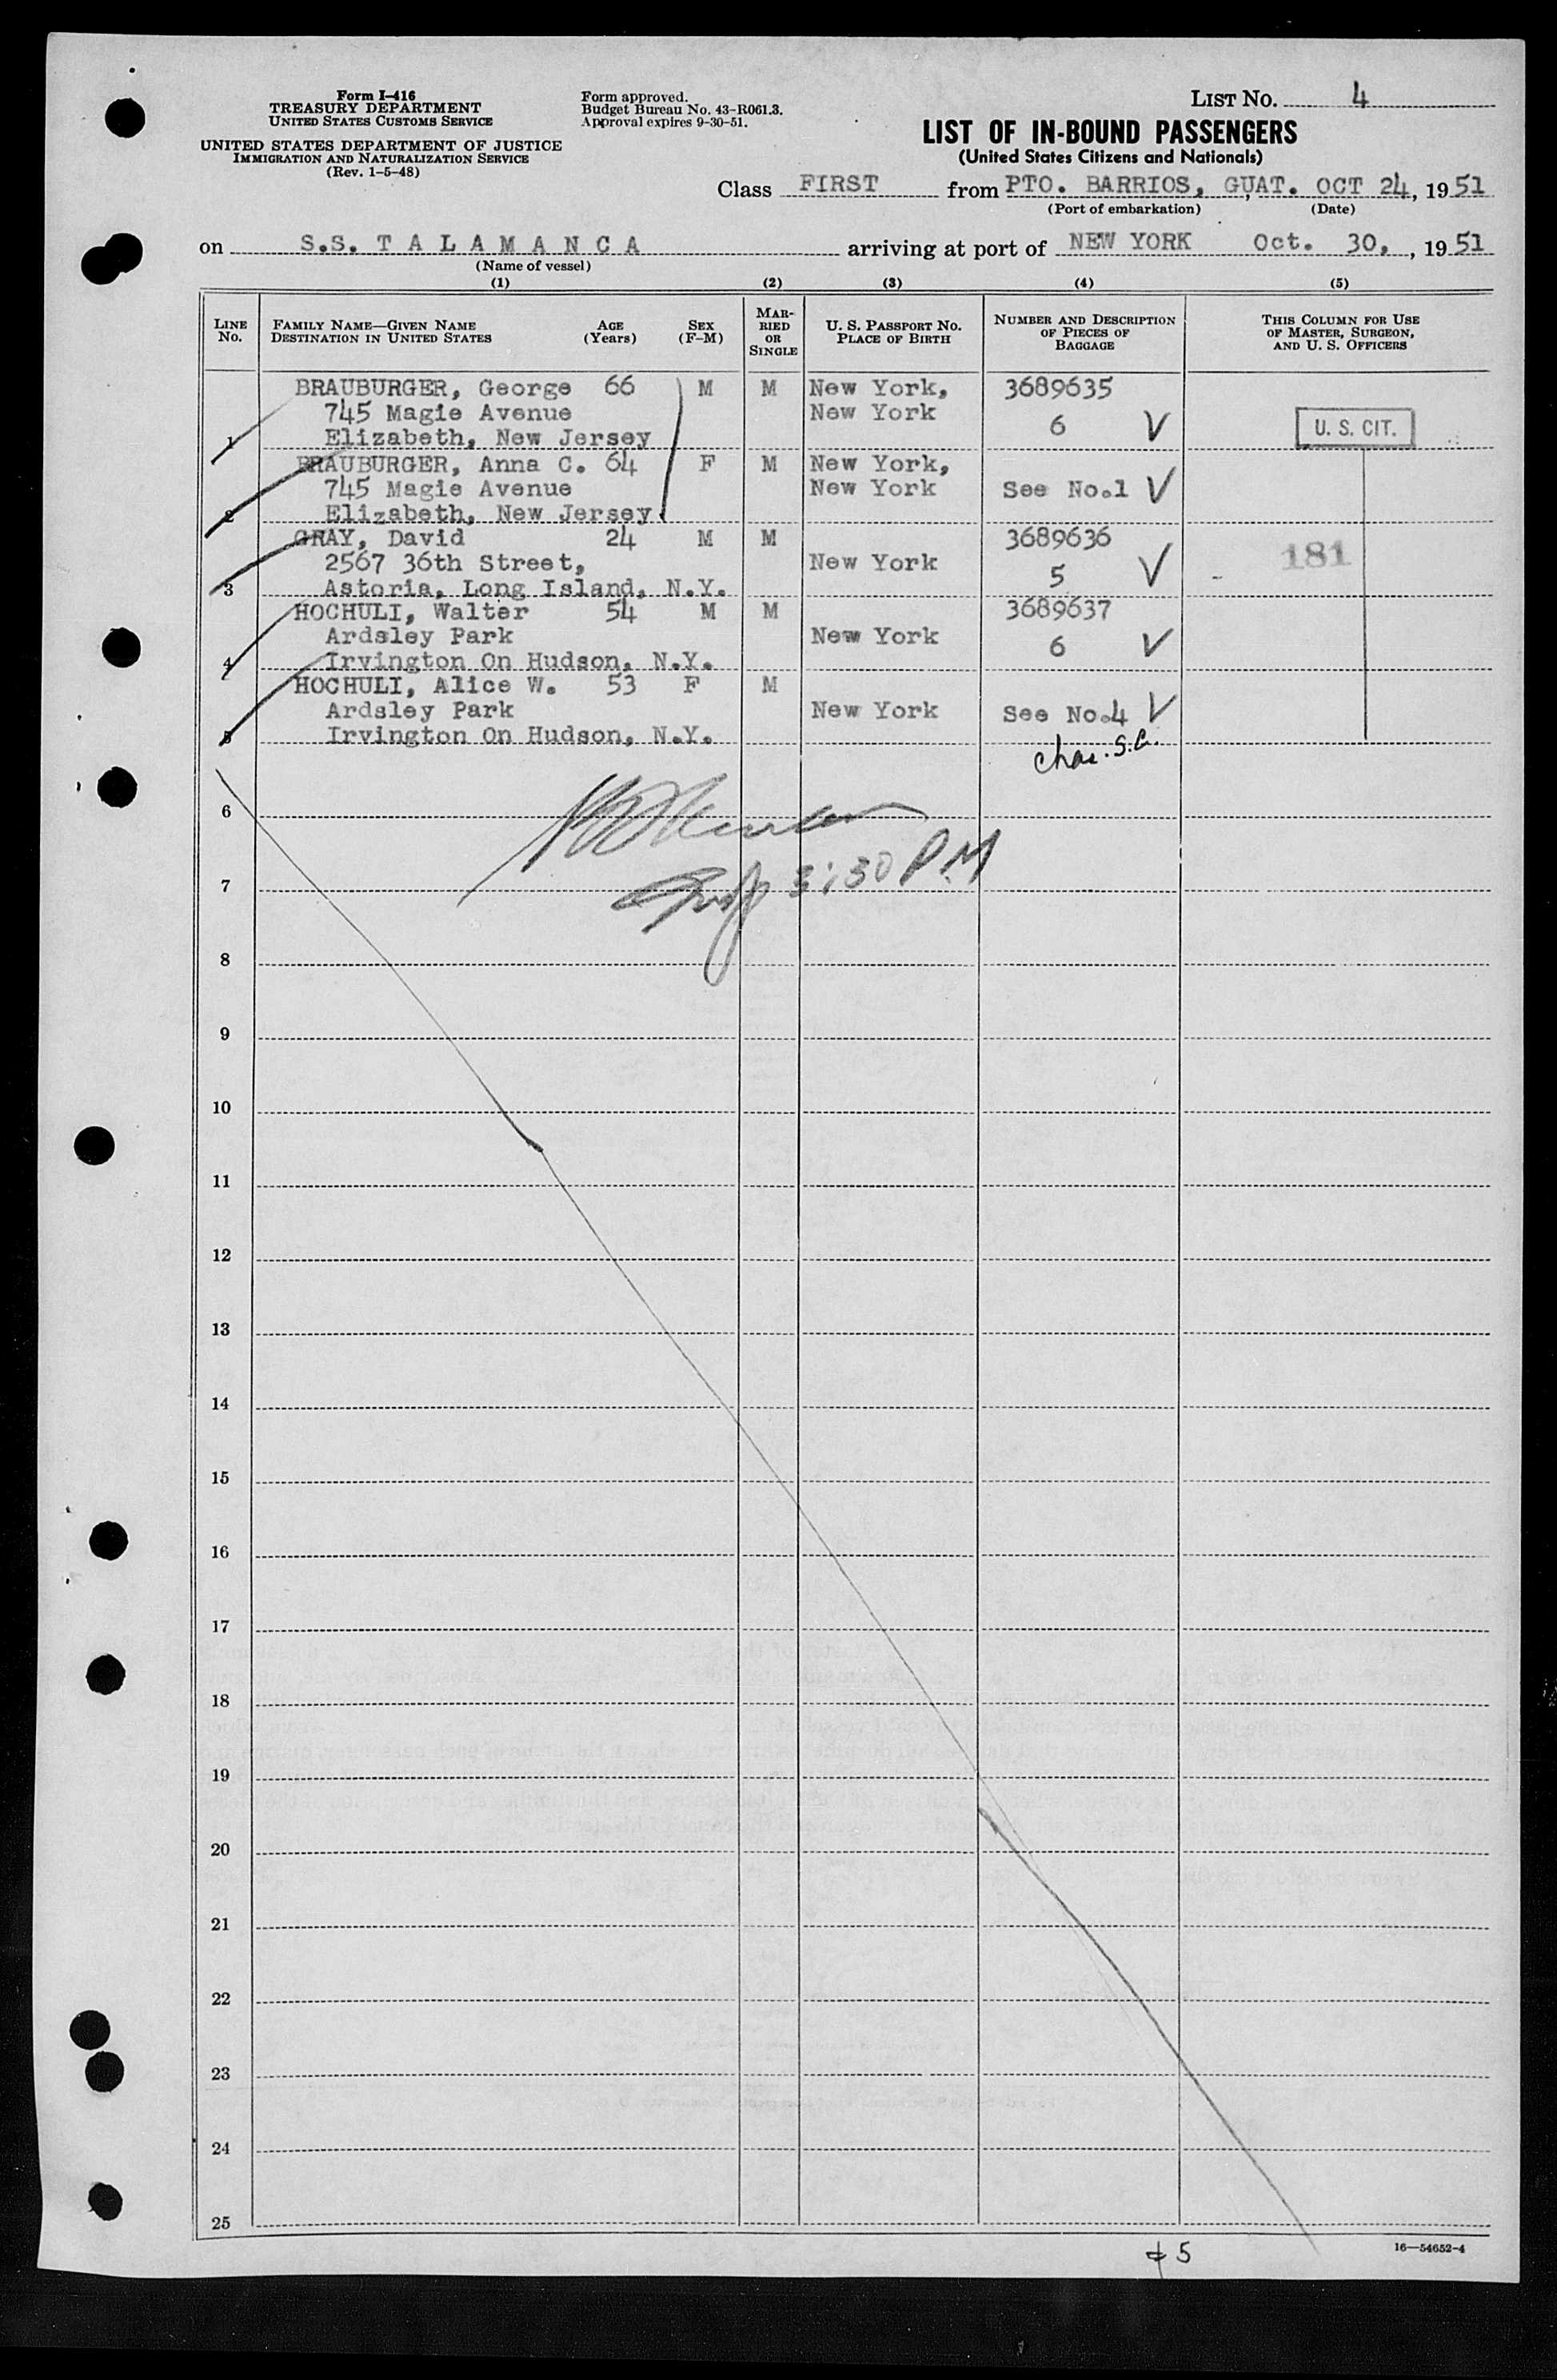 Form I-416
TREASURY DEPARTMENT
UNITED STATES CUSTOMS SERVICE
UNITED STATES DEPARTMENT OF JUSTICE
IMMIGRATION AND NATURALIZATION SERVICE
(Rev. 1-5-48)
Form approved.
Budget Bureau No. 43-R061.3.
Approval expires 9-30-51.
LIST NO. 4
LIST OF IN-BOUND PASSENGERS
(United States Citizens and Nationals)
Class FIRST from PTO. BARRIOS, GUAT. OCT 24, 1951
(Port of embarkation) (Date)
on S.S. T A L A M A N C A arriving at port of NEW YORK Oct. 30, , 1951
(Name of vessel)
(1) (2) (3) (4) (5)
LINE No.
FAMILY NAME—GIVEN NAME
DESTINATION IN UNITED STATES
AGE
(Years)
SEX
(F-M)
MARRIED OR SINGLE
U. S. PASSPORT NO.
PLACE OF BIRTH
NUMBER AND DESCRIPTION
OF PIECES OF
BAGGAGE
THIS COLUMN FOR USE
OF MASTER, SURGEON,
AND U. S. OFFICERS
BRAUBURGER, George 66 M M New York, 3689635
745 Magie Avenue New York 6 V U. S. CIT.
1 Elizabeth, New Jersey
BRAUBURGER, Anna C. 64 F M New York,
745 Magie Avenue New York See No.1 V
2 Elizabeth, New Jersey
GRAY, David 24 M M 3689636
2567 36th Street, New York 5 V 181
3 Astoria, Long Island, N.Y.
HOCHULI, Walter 54 M M 3689637
Ardsley Park New York 6 V
4 Irvington On Hudson, N.Y.
HOCHULI, Alice W. 53 F M
Ardsley Park New York See No.4 V
5 Irvington On Hudson, N.Y.
Chas. S.C.
6
3:30 PM
7
8
9
10
11
12
13
14
15
16
17
18
19
20
21
22
23
24
25
5
16—54652-4